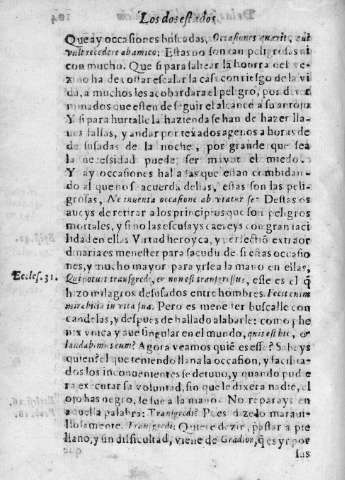 Los dos estados.
Que ay occasiones buscadas, Occasiones querit, qui
vult recedere ab amico: Estas no son tan peligrosas ni
con mucho. Que si para saltear la honrra del ve-
zino ha de costar escalar la casa con riesgo de la vi
da, a muchos les acobardara el peligro, por deter
minados que esten de seguir el alcance a su arrojo.
Y si para hurtalle la hazienda se han de hazer lla-
ues falsas, y andar por texados agenos a horas de
desusadas de la noche, por grande que sea
la necessidad puede ser mayor el miedo.
Y ay occasiones halladas que estan combidan-
do al que no se acuerda dellas, estas son las peli-
grosas, Ne inuenta occasione
Destas os
aueys de retirar a los principios que son peligros
mortales, y si no las escusays caereys con gran faci
lidad en ellas. Virtud heroyca, y perfection extraor
dinaria es menester para sacudirse si estas occasio
nes, y mucho mayor para yrse a la mano en ellas,
Eccles. 31. Qui potuit transgredi, & non est transgressus, este es el q̃
hizo milagros desusados entre hombres. Fecit enim
mirabilia in vita sua. Pero es menester buscalle con
candelas, y despues de hallado alabarle: como phe
nix vnica y aue singular en el mundo, quis est hic, &
laudabimus eum? Agora veamos quiẽ es esse? Sabeys
quien? el que teniendo llana la occasion, y facilita-
dos los inconuenientes se detuuo, y quando pudie
ra executar su voluntad, sin que le dixera nadie, el
ojo has negro, se fue a la mano. No reparays en
aquella palabra: Transgredi? Pues dizelo maraui-
llosamente. Transgredi: Quiere dezir, passar a pie
llano, y sin difficultad, viene de Gradior, q̃ es yr por
las